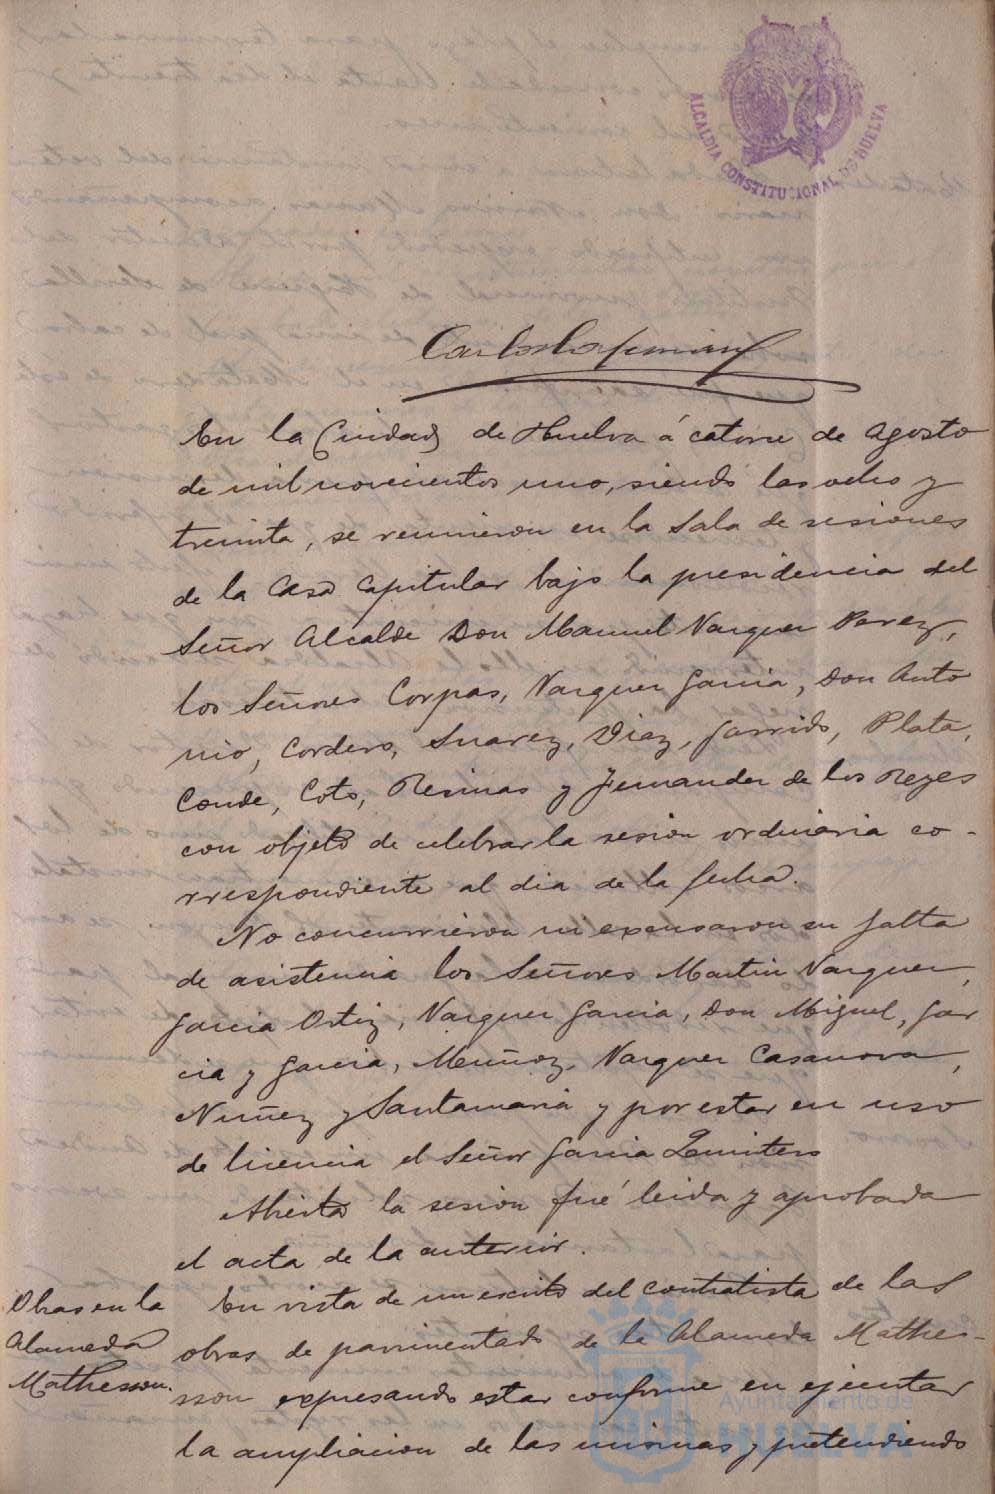 ALCALDIA CONSTITUCIONAL DE HUELVA
En la Ciudad de Huelva á catorce de Agosto
de mil novecientos uno, siendo las ocho y
treinta, se reunieron en la Sala de sesiones
de la Casa Capitular bajo la presidencia del
Señor Alcalde Don Manuel Vazquez Perez,
los Señores Corpas, Vazquez Garcia, Don Anto
nio, Cordero, Suarez, Diaz, Garrido, Plata,
Conde, Coto, Resinas y Fernandez de los Reyes
con objeto de celebrar la sesion ordinaria co-
rrespondiente al dia de la fecha.
No concurrieron ni excusaron su falta
de asistencia los Señores Martin Vazquez,
Garcia Ortiz, Vazquez Garcia, Don Miguel, Gar
cia y Garcia, Muñoz, Vazquez Casanova,
Nuñez y Santamaria y por estar en uso
de licencia el Señor Garcia Quintero
Abierta la sesion fué leida y aprobada
el acta de la anterior.
Obras en la
Alameda
Mathesson.
En vista de un escrito del contratista de las
obras de pavimentado de la Alameda Mathe-
sson expresando estar conforme en ejecutar
la ampliacion de las mismas y pretendiendo
Ayuntamiento de
HUELVA